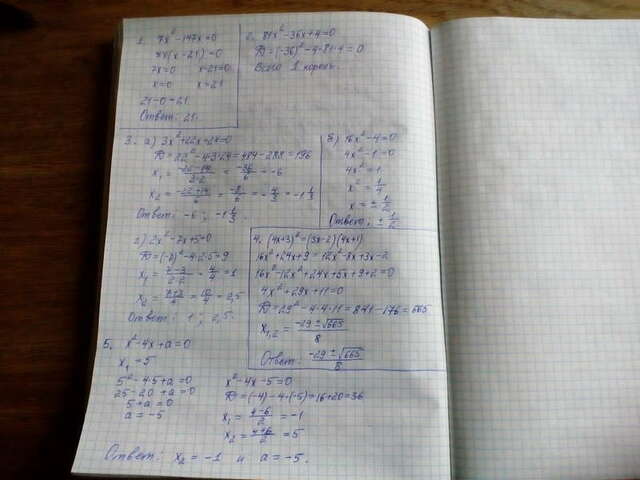 1. 7x² - 147x = 0
7x(x - 21) = 0
7x = 0 x - 21 = 0
x = 0 x = 21
21 - 0 = 21
Ответ: 21.
2. 81x² - 36x + 4 = 0
D = (-36)² - 4·81·4 = 0
Всего 1 корень.
3. а) 3x² + 22x + 24 = 0
D = 22² - 4·3·24 = 484 - 288 = 196
x₁ = (-22 - 14)/(3·2) = -36/6 = -6
x₂ = (-22 + 14)/6 = -8/6 = -4/3 = -1 1/3
Ответ: -6 ; -1 1/3.
б) 16x² - 4 = 0
4x² - 1 = 0
4x² = 1
x² = 1/4
x = ± 1/2
Ответ: ± 1/2
г) 2x² - 7x + 5 = 0
D = (-7)² - 4·2·5 = 9
x₁ = (7 - 3)/(2·2) = 4/4 = 1
x₂ = (7 + 3)/4 = 10/4 = 2,5
Ответ: 1 ; 2,5.
4. (4x+3)² = (3x-2)(4x+1)
16x² + 24x + 9 = 12x² - 8x + 3x - 2
16x² - 12x² + 24x + 5x + 9 + 2 = 0
4x² + 29x + 11 = 0
D = 29² - 4·4·11 = 841 - 176 = 665
x₁,₂ = (-29 ± √665)/8
Ответ: (-29 ± √665)/8
5. x² - 4x + a = 0
x₁ = 5
5² - 4·5 + a = 0
25 - 20 + a = 0
5 + a = 0
a = -5
x² - 4x - 5 = 0
D = (-4) - 4·(-5) = 16 + 20 = 36
x₁ = (4 - 6)/2 = -1
x₂ = (4 + 6)/2 = 5
Ответ: x₂ = -1 и a = -5.